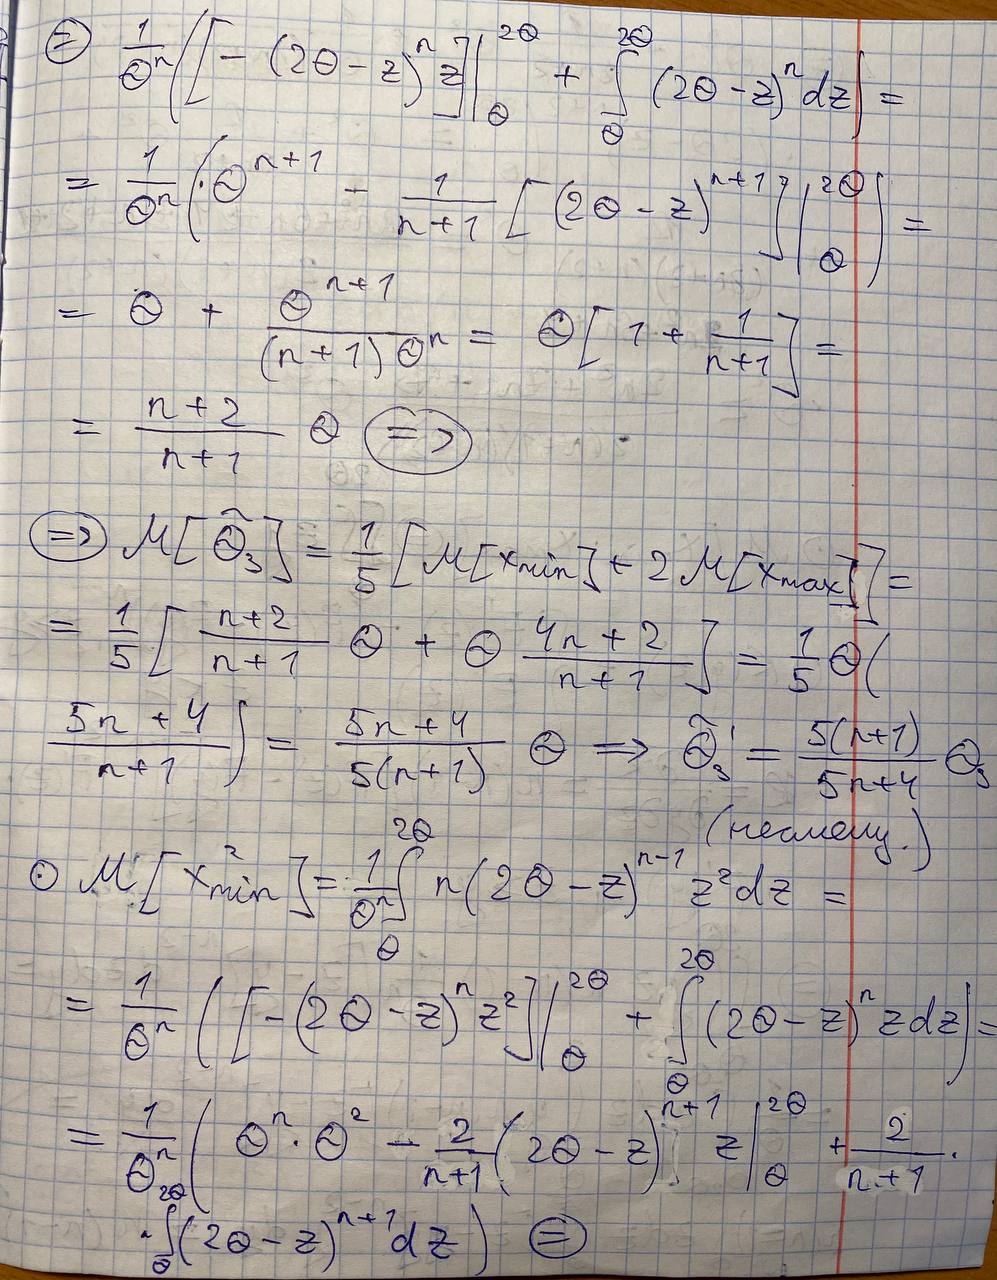 ⊜ 1/Θⁿ ([-(2Θ-z)ⁿ z]|_Θ^{2Θ} + ∫_Θ^{2Θ} (2Θ-z)ⁿ dz) =
= 1/Θⁿ (·Θ^{n+1} - 1/(n+1) [(2Θ-z)^{n+1}]|_Θ^{2Θ}) =
= Θ + Θ^{n+1}/((n+1)Θⁿ) = Θ[1 + 1/(n+1)] =
= (n+2)/(n+1) Θ (=>)
(=>) M[Θ̃₃] = 1/5 [M[x_min] + 2M[x_max]] =
= 1/5 [(n+2)/(n+1) Θ + Θ (4n+2)/(n+1)] = 1/5 Θ(
(5n+4)/(n+1)) = (5n+4)/(5(n+1)) Θ => Θ̃₃' = 5(n+1)/(5n+4) Θ̃₃
(несмещ.)
⊙ M[x²_min] = 1/Θⁿ ∫_Θ^{2Θ} n(2Θ-z)^{n-1} z² dz =
= 1/Θⁿ ([-(2Θ-z)ⁿ z²]|_Θ^{2Θ} + ∫_Θ^{2Θ} (2Θ-z)ⁿ z dz) =
= 1/Θⁿ (Θⁿ·Θ² - 2/(n+1) (2Θ-z)^{n+1} z|_Θ^{2Θ} + 2/(n+1) ·
· ∫_Θ^{2Θ} (2Θ-z)^{n+1} dz) ⊜